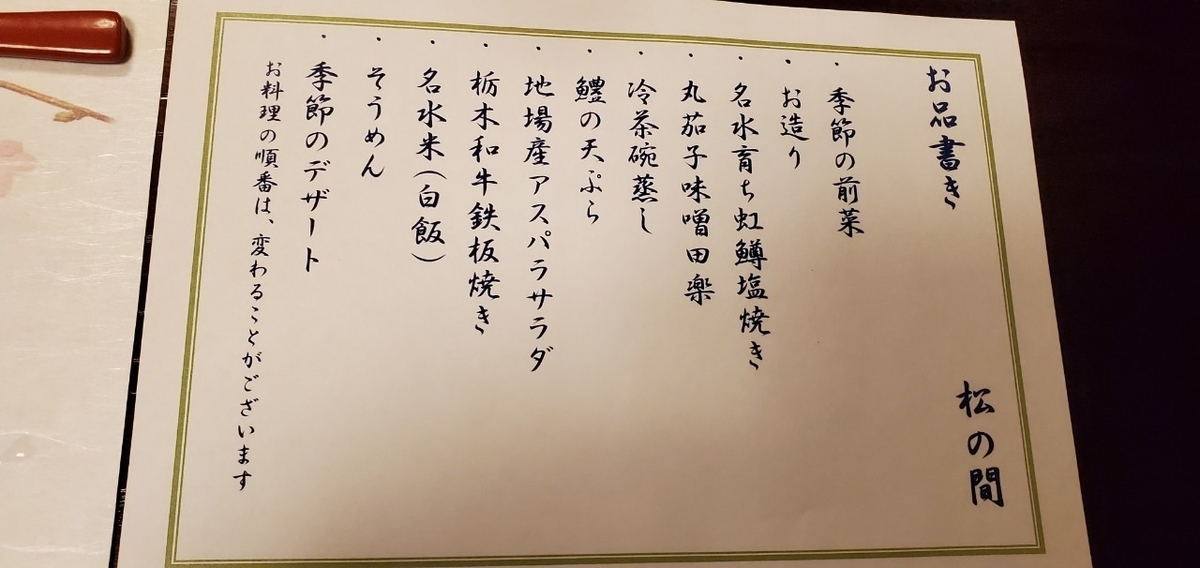 お品書き
松の間
・季節の前菜
・お造り
・名水育ち虹鱒塩焼き
・丸茄子味噌田楽
・冷茶碗蒸し
・鱧の天ぷら
・地場産アスパラサラダ
・栃木和牛鉄板焼き
・名水米(白飯)
・そうめん
・季節のデザート
お料理の順番は、変わることがございます